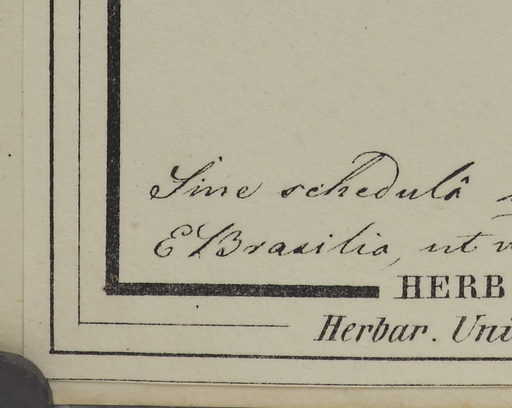 Sine schedulâ
E Brasilia, ut
HERB
Herbar. Uni